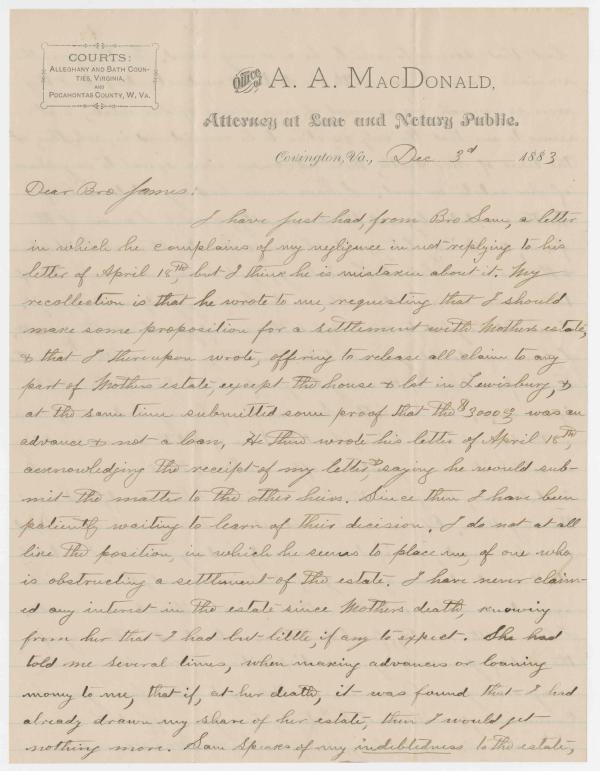 COURTS:
ALLEGHANY AND BATH COUN-
TIES, VIRGINIA,
AND
POCAHONTAS COUNTY, W. VA.
Office of A. A. MACDONALD,
Attorney at Law and Notary Public.
Covington, Va., Dec 3d 1883
Dear Bro James:
I have just had, from Bro Sam, a letter
in which he complains of my negligence in not replying to his
letter of April 18th, but I think he is mistaken about it. My
recollection is that he wrote to me, requesting that I should
make some proposition for a settlement with Mothers estate,
& that I thereupon wrote, offering to release all claim to any
part of Mothers estate, except the house & lot in Lewisburg, &
at the same time submitted some proof that the $3000 was an
advance & not a loan. He then wrote his letter of April 18th,
acknowledging the receipt of my letter, & saying he would sub-
mit the matter to the other heirs. Since then I have been
patiently waiting to learn of their decision. I do not at all
like the position, in which he seems to place me, of one who
is obstructing a settlement of the estate. I have never claim-
ed any interest in the estate since Mothers death, knowing
from her that I had but little, if any to expect. She had
told me several times, when making advances or loaning
money to me, that if, at her death, it was found that I had
already drawn my share of her estate, then I would get
nothing more. Sam speaks of my indebtedness to the estate,